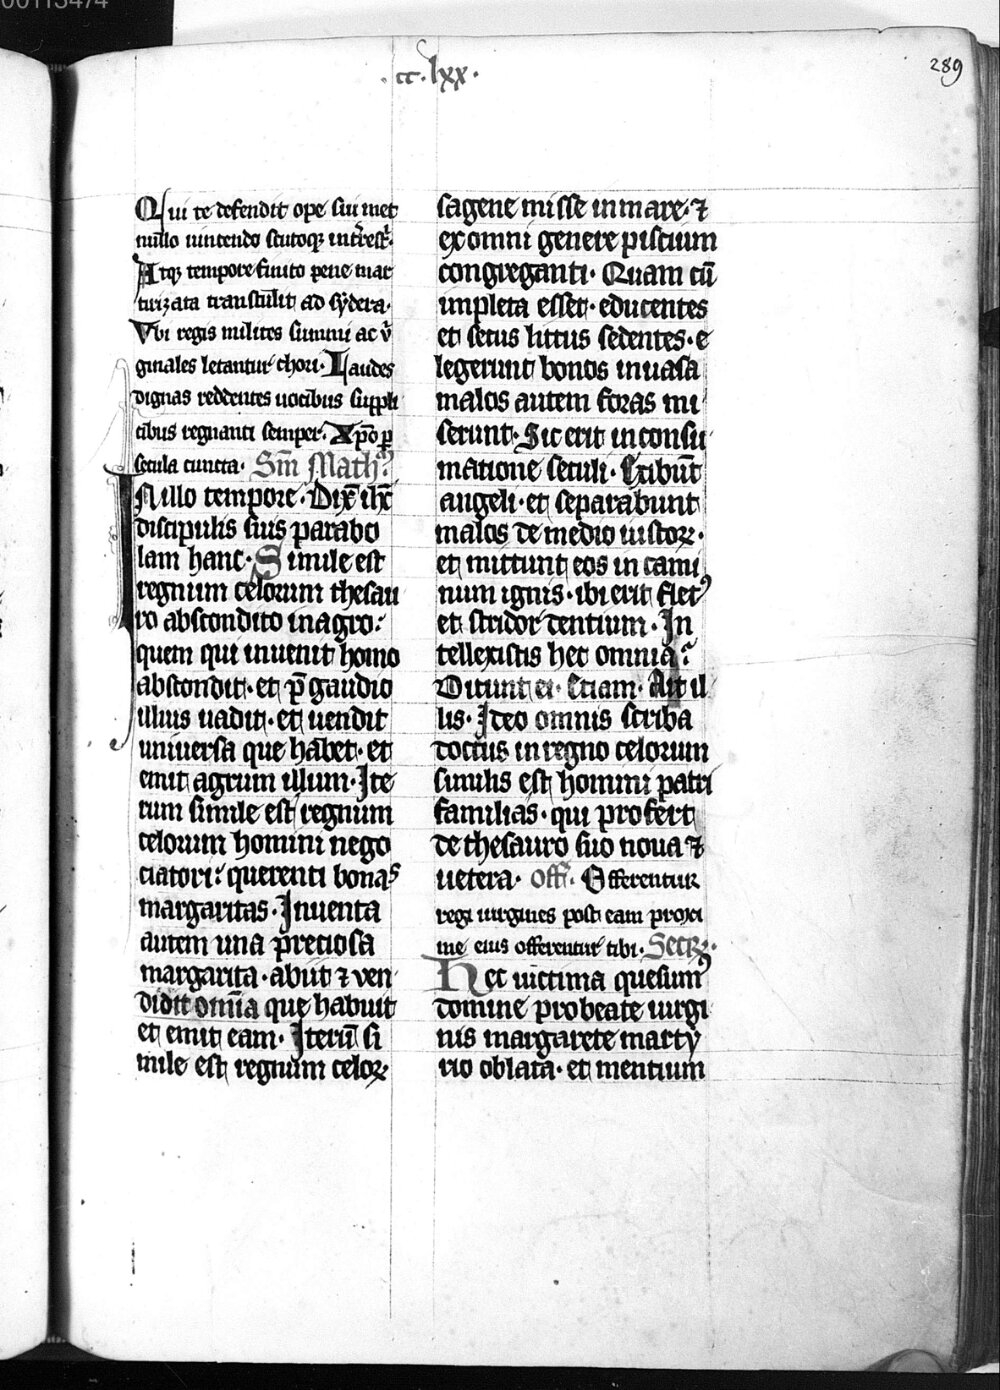 00113474
.cc.lxx.
289
Qui te defendit ope sui met
nullo uincendo scutoq; int̄rest̄.
Atq; tempore finito pene mar
tirizata transtulit ad sydera.
Vbi regis milites summi ac v̄
ginales letantur chori. Laudes
dignas reddentes uocibus suppli
cibus regnanti semper. Xp̄o ꝑ
secula cuncta. Sm̄ Math.
IN illo tempore. Dix̄ ih̄c
discipulis suis parabo
lam hanc. Simile est
regnum celorum thesau
ro abscondito in agro:
quem qui inuenit homo
abscondit. et p̄ gaudio
illius uadit. et uendit
uniuersa que habet. et
emit agrum illum. Ite
rum simile est regnum
celorum homini nego
ciatori: querenti bonas
margaritas. Inuenta
autem una preciosa
margarita. abiit ⁊ ven
didit om̄ia que habuit
et emit eam. Iterū si
mile est regnum celoꝝ
sagene misse in mare. ⁊
ex omni genere piscium
congreganti. Quam cū
impleta esset. educentes
et secus littus sedentes. e
legerunt bonos in uasa
malos autem foras mi
serunt. Sic erit in consu
matione seculi. Exibūt
angeli. et separabunt
malos de medio iustoꝝ.
et mittunt eos in cami
num ignis. ibi erit flet᷒
et stridor dentium. In
tellexistis hec omnia?
Dicunt ei. Etiam. Ait il
lis. Ideo omnis scriba
doctus in regno celorum
similis est homini patri
familias. qui profert
de thesauro suo noua ⁊
uetera. Off. Offerentur
regi uirgines post eam proxi
me eius offerentur tibi. Secꝝ.
Hec uictima quesum᷒
domine pro beate uirgi
nis margarete marty
rio oblata. et mentium